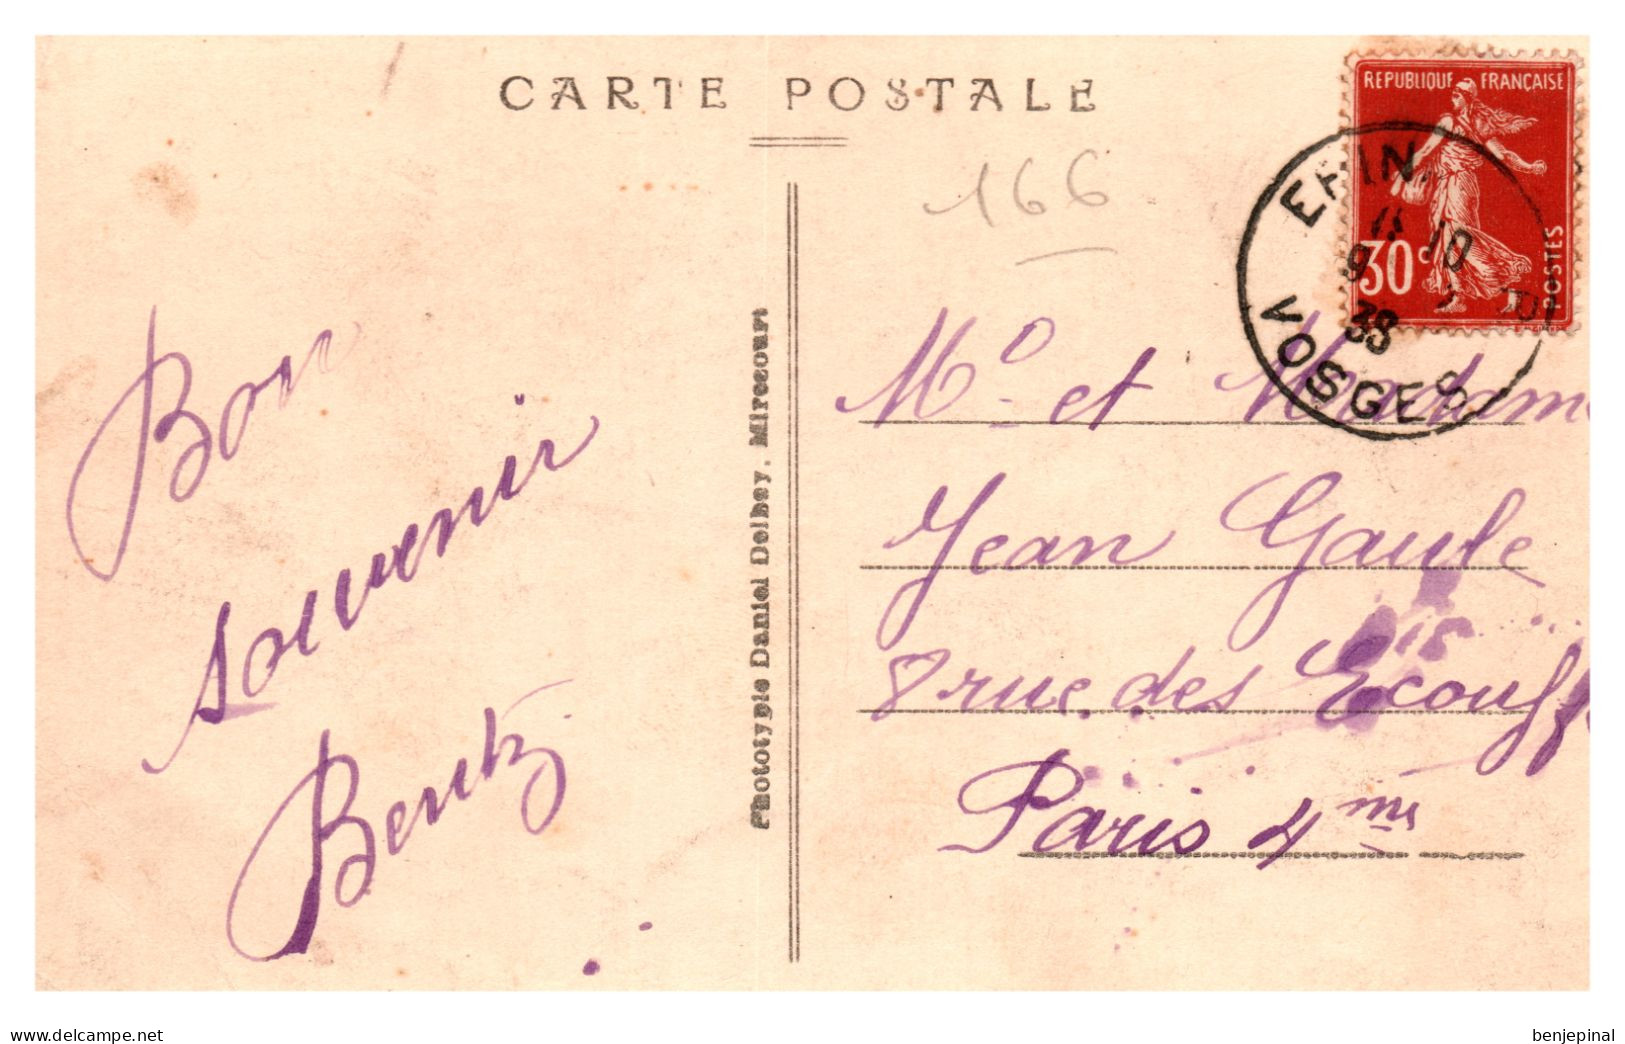 CARTE POSTALE
166
REPUBLIQUE FRANÇAISE
30c
POSTES
EPIN
10
9 2
38
VOSGES
Bon
souvenir
Bentz
Phototypie Daniel Delbey, Mirecourt
Mr et Madame
Jean Gaule
8 rue des Ecouff
Paris 4me
delcampe.net
benjepinal